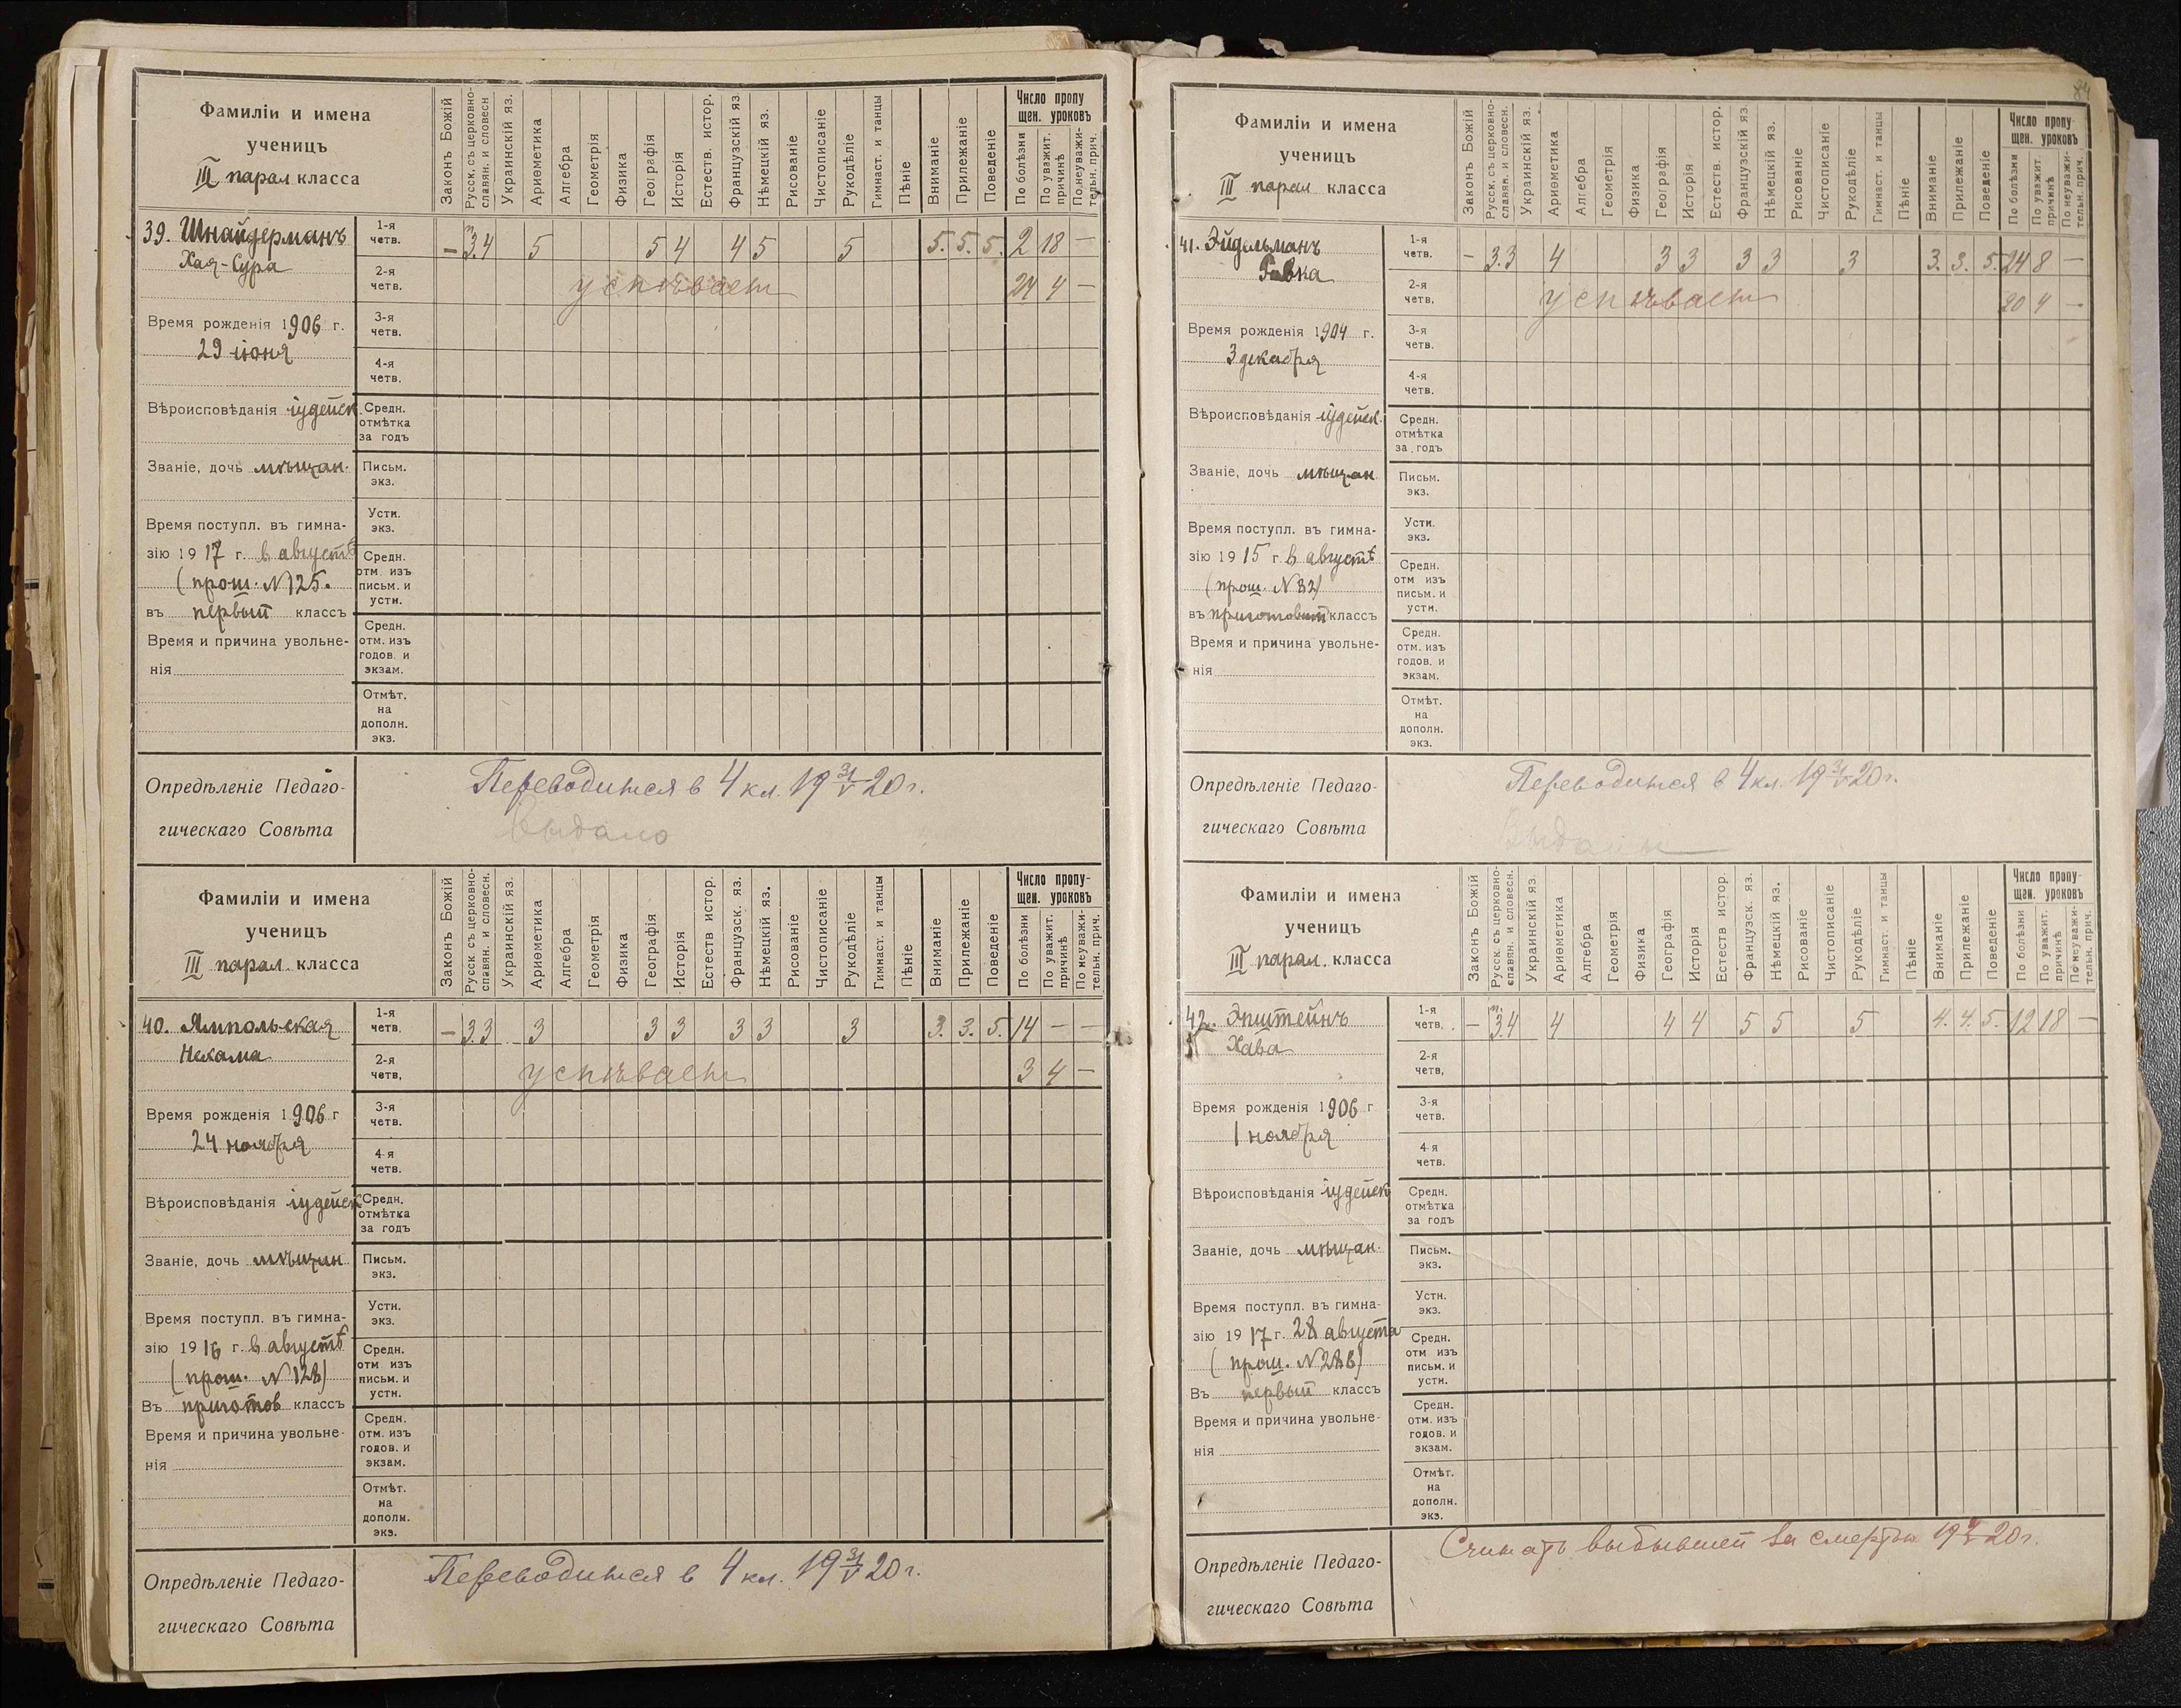 84
Фамиліи и имена
ученицъ
III парал. класса
Законъ Божій
Русск. съ церковно-
славян. и словесн
Украинскій яз.
Ариѳметика
Алгебра
Геометрія
Физика
Географія
Исторія
Естеств. истор.
Французскій яз
Нѣмецкій яз.
Рисованіе
Чистописаніе
Рукодѣліе
Гимнаст. и танцы
Пѣніе
Вниманіе
Прилежаніе
Поведеніе
Число пропу
щен. уроковъ
По болѣзни
По уважит.
причинѣ
По неуважи-
тельн. прич.
39. Шнайдерманъ
Хая-Сура
1-я
четв.
– 3.4 5 5 4 4 5 5 5. 5. 5. 2 18 –
2-я
четв.
успѣваетъ 24 4 –
Время рожденія 1906 г.
29 іюня
3-я
четв.
4-я
четв.
Вѣроисповѣданія іудейск.
Средн.
отмѣтка
за годъ
Званіе, дочь мѣщан.
Письм.
экз.
Время поступл. въ гимна-
зію 1917 г. в августѣ
(прош. N 125.
въ первый классъ
Устн.
экз.
Средн.
отм. изъ
письм. и
устн.
Время и причина увольне-
нія
Средн.
отм. изъ
годов. и
экзам.
Отмѣт.
на
дополн.
экз.
Опредѣленіе Педаго-
гическаго Совѣта
Переводится в 4 кл. 19 31/V 20 г.
Выдано
Фамиліи и имена
ученицъ
III парал. класса
Законъ Божій
Русск. съ церковно-
славян. и словесн.
Украинскій яз.
Ариѳметика
Алгебра
Геометрія
Физика
Географія
Исторія
Естеств истор.
Французск. яз.
Нѣмецкій яз.
Рисованіе
Чистописаніе
Рукодѣліе
Гимнаст. и танцы
Пѣніе
Вниманіе
Прилежаніе
Поведеніе
Число пропу-
щен. уроковъ
По болѣзни
По уважит.
причинѣ
По неуважи-
тельн. прич.
40. Ямпольская
Нехама
1-я
четв.
– 3.3 3 3 3 3 3 3 3. 3. 5. 14 – –
2-я
четв,
успѣваетъ 3 4 –
Время рожденія 1906 г
24 ноября
3-я
четв.
4-я
четв.
Вѣроисповѣданія іудейск
Средн.
отмѣтка
за годъ
Званіе, дочь мѣщан
Письм.
экз.
Время поступл. въ гимна-
зію 1916 г. в августѣ
(прош. N 128)
Въ приготов классъ
Устн.
экз.
Средн.
отм изъ
письм. и
устн.
Время и причина увольне-
нія
Средн.
отм. изъ
годов. и
экзам.
Отмѣт.
на
дополн.
экз.
Опредѣленіе Педаго-
гическаго Совѣта
Переводится в 4 кл. 19 31/V 20 г.
Фамиліи и имена
ученицъ
III парал класса
Законъ Божій
Русск. съ церковно-
славян. и словесн.
Украинскій яз.
Ариѳметика
Алгебра
Геометрія
Физика
Географія
Исторія
Естеств. истор.
Французскій яз.
Нѣмецкій яз.
Рисованіе
Чистописаніе
Рукодѣліе
Гимнаст. и танцы
Пѣніе
Вниманіе
Прилежаніе
Поведеніе
Число пропу-
щен. уроковъ
По болѣзни
По уважит
причинѣ
По неуважи-
тельн. прич.
41. Эйдельманъ
Ривка
1-я
четв.
– 3.3 4 3 3 3 3 3 3. 3. 5. 24 8 –
2-я
четв,
успѣваетъ 20 4 –
Время рожденія 1904 г.
3 декабря
3-я
четв.
4-я
четв.
Вѣроисповѣданія іудейск.
Средн.
отмѣтка
за годъ
Званіе, дочь мѣщан
Письм.
экз.
Время поступл. въ гимна-
зію 1915 г в августѣ
(прош. N 82)
въ приготовит классъ
Устн.
экз.
Средн.
отм изъ
письм. и
устн.
Время и причина увольне-
нія
Средн.
отм. изъ
годов. и
экзам.
Отмѣт.
на
дополн.
экз.
Опредѣленіе Педаго-
гическаго Совѣта
Переводится в 4 кл. 19 31/V 20 г.
Фамиліи и имена
ученицъ
III парал. класса
Законъ Божій
Русск. съ церковно-
славян. и словесн.
Украинскій яз
Ариѳметика
Алгебра
Геометрія
Физика
Географія
Исторія
Естеств истор
Французск. яз.
Нѣмецкій яз.
Рисованіе
Чистописаніе
Рукодѣліе
Гимнаст. и танцы
Пѣніе
Вниманіе
Прилежаніе
Поведеніе
Число пропу-
щен. уроковъ
По болѣзни
По уважит.
причинѣ
По неуважи-
тельн. прич.
42. Эпштейнъ
Хава
1-я
четв.
– 3.4 4 4 4 5 5 5 4. 4. 5. 12 18 –
2-я
четв,
Время рожденія 1906 г
1 ноября
3-я
четв.
4-я
четв.
Вѣроисповѣданія іудейск
Средн.
отмѣтка
за годъ
Званіе, дочь мѣщан.
Письм.
экз.
Время поступл. въ гимна-
зію 1917 г. 28 августа
(прош. N 288)
Въ первый классъ
Устн.
экз.
Средн.
отм изъ
письм. и
устн.
Время и причина увольне-
нія
Средн.
отм. изъ
годов. и
экзам.
Отмѣт.
на
дополн.
экз.
Опредѣленіе Педаго-
гическаго Совѣта
Считать выбывшей за смертью 20 г.